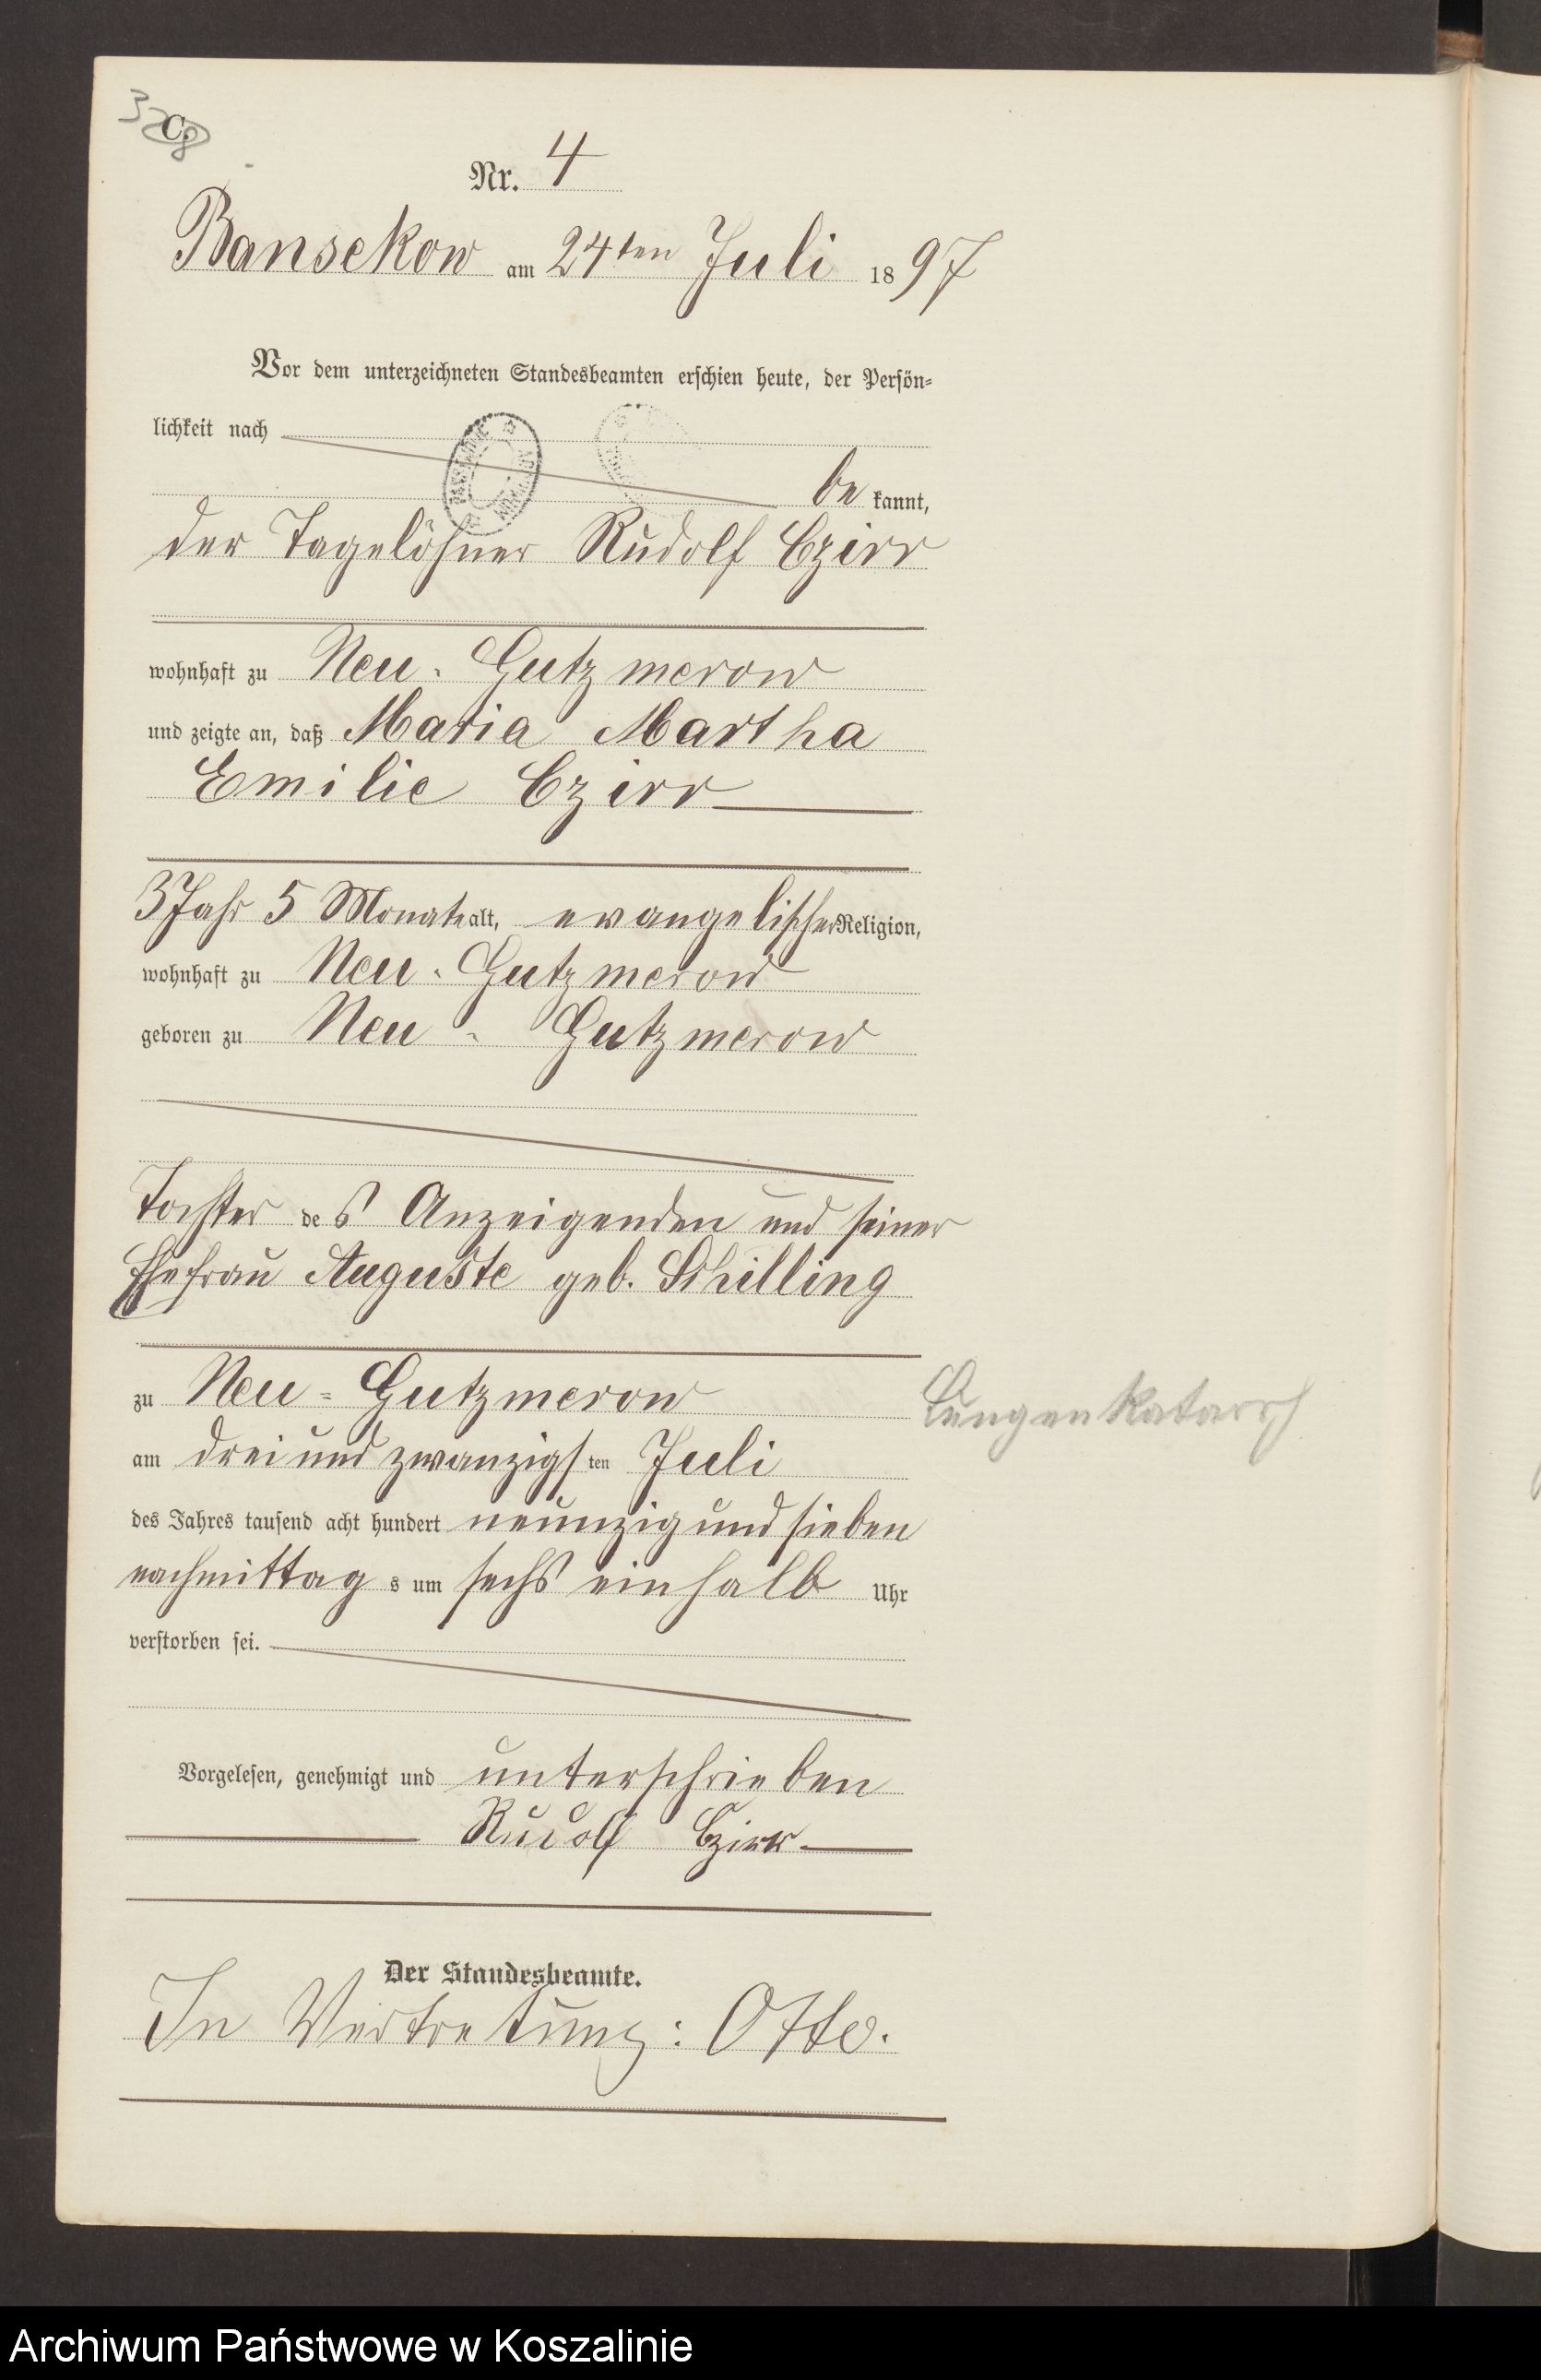 C.
Nr. 4
Bansekow am 24ten Juli 1897
Vor dem unterzeichneten Standesbeamten erschien heute, der Persön-
lichkeit nach
be kannt,
der Tagelöhner Rudolf Czirr
wohnhaft zu Neu-Gutzmerow
und zeigte an, daß Maria Martha
Emilie Czirr
3 Jahr 5 Monate alt, evangelischer Religion,
wohnhaft zu Neu-Gutzmerow
geboren zu Neu-Gutzmerow
Tochter des Anzeigenden und seiner
Ehefrau Auguste geb. Schilling
zu Neu=Gutzmerow
Lungenkatarrh
am drei und zwanzigsten Juli
des Jahres tausend acht hundert neunzig und sieben
nachmittags um sechs einhalb Uhr
verstorben sei.
Vorgelesen, genehmigt und unterschrieben
Rudolf Czirr
Der Standesbeamte.
In Vertretung: Otto.
Archiwum Państwowe w Koszalinie